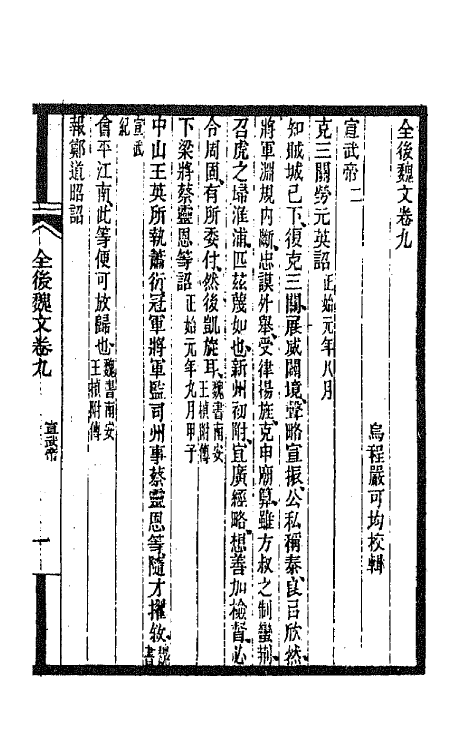 全後魏文卷九
烏程嚴可均校輯
宣武帝二
克三關勞元英詔 正始元年八月
知賊城已下、復克三關、展威闢境、聲略宣振、公私稱泰、良以欣然、
將軍淵規內斷、忠謨外舉、受律揚旌、克申廟算、雖方叔之制蠻荊、
召虎之埽淮浦、匹茲蔑如也、新州初附、宜廣經略、想善加檢督、必
令周固、有所委付、然後凱旋耳、魏書南安王楨附傳
下梁將蔡靈恩等詔 正始元年九月甲子
中山王英所執蕭衍冠軍將軍監司州事蔡靈恩等、隨才擢敘、魏書
宣武紀
會平江南、此等便可放歸也、魏書南安王楨附傳
報鄭道昭詔
全後魏文卷九 宣武帝 一